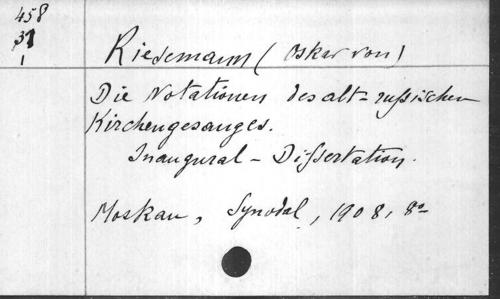 458
31
1
Riesemann (Oskar von)
Die Notationen des alt-russischen
Kirchengesanges.
Inaugural-Dissertation.
Moskau, Synodal, 1908, 8º